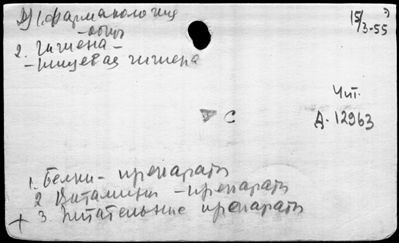 1. Фармакология
- общ.
2. гигиена -
- пищевая гигиена
15/3-55
Чит.
А-12963
С
1. Белки - препараты
2. Витамины - препараты
+ 3. Питательные препараты